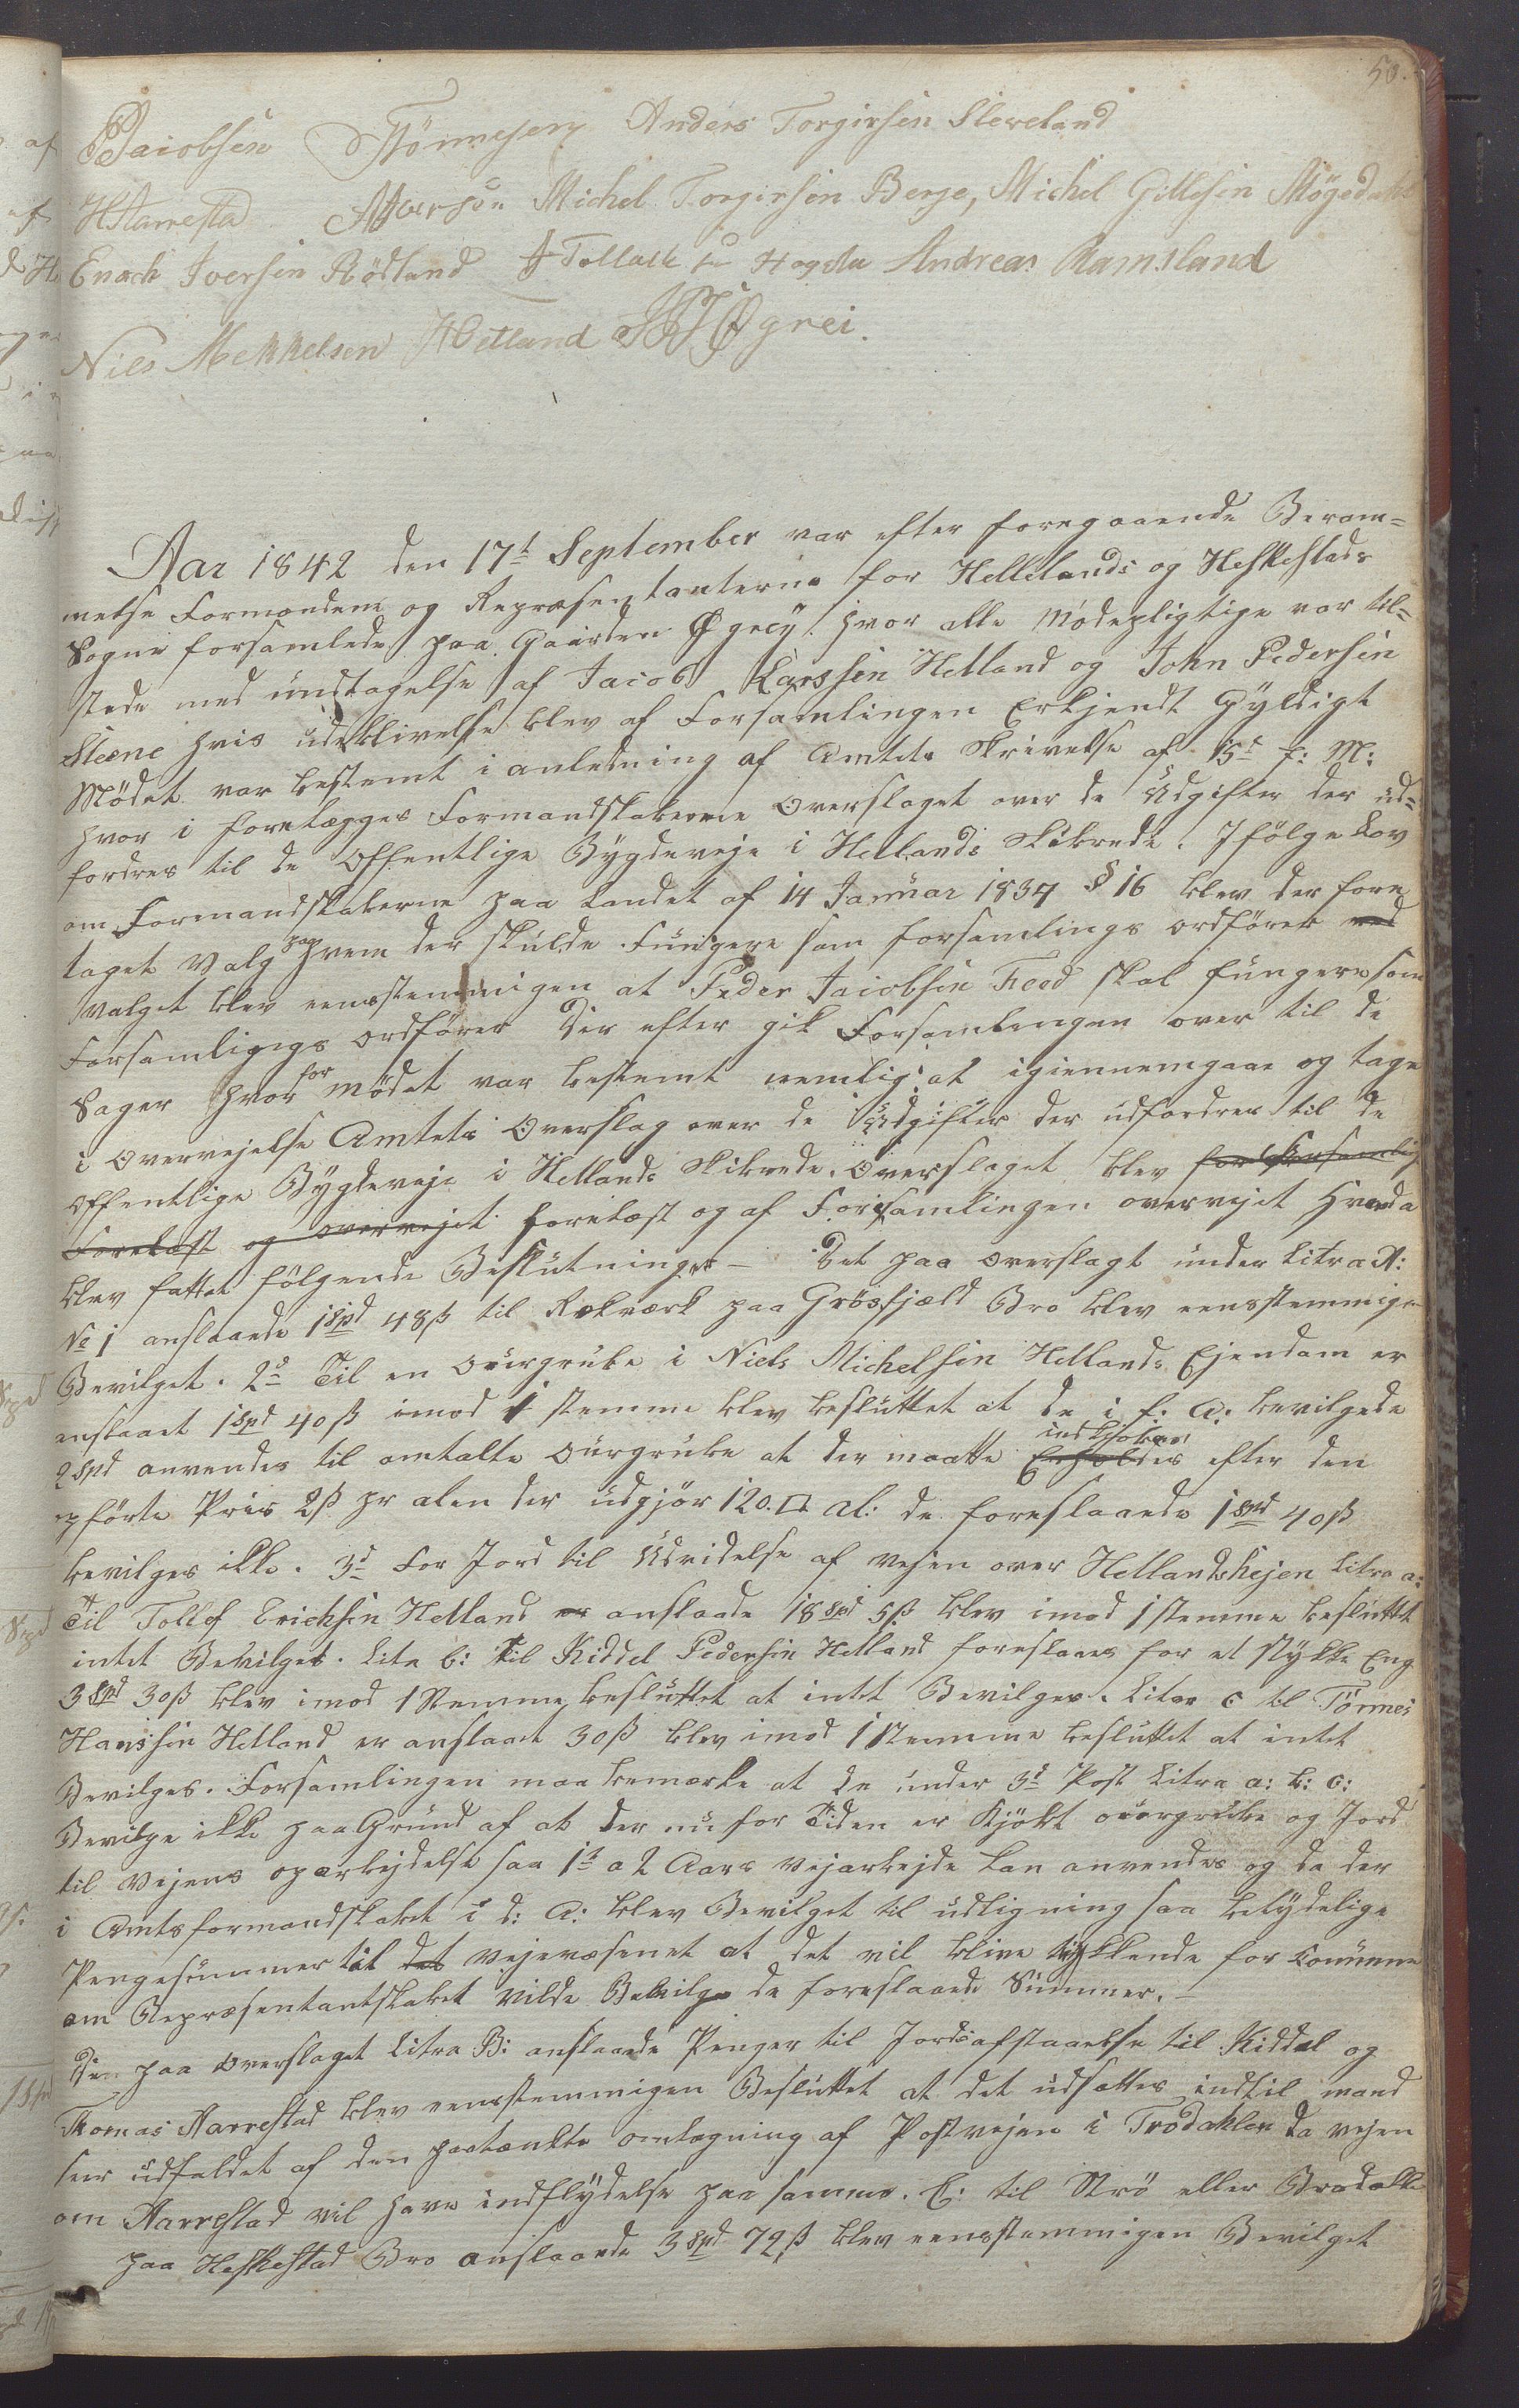 50.
PJacobsen Tönnesen Anders Torgirsen Sleveland
HHarrestad AIversön Michel Torgirsön Berje, Michel Gitlesön Mögedahl
Enoch Iversen Rödland J Tollalk Hogstu Andreas Ramsland
Niels Mekkelsen Hetland Øgrei.
Aar 1842 den 17t September var efter foregaaende Beram=
melse Formændene og Repræsentanterne for Hellelands og Heskestads
Sogne forsamlede paa Gaarden Øgrey. hvor alle Mödepligtige var til=
stede med undtagelse af Jacob Larssen Hetland og John Pedersen
Steene hvis udeblivelse blev af Forsamlingen Erkjendt Gyldigt
Mödet var bestemt i anledning af Amtets Skrivelse af 15d f: M:
hvor i forelægges Formandskaberne Overslaget over de Udgifter der ud=
fordres til de Offentlige Bygdeveje i Hetlands Skibrede. Ifölge Lov
om Formandskaberne paa Landet af 14 Januar 1837 § 16 blev der fore
taget Valg paa hvem der skulde Fungere som forsamlings ordförer ved
valget blev eenstemmigen at Peder Jacobsen Feed skal fungere som
Forsamligngs ordförer Der efter gik Forsamlingen over til de
Sager hvor for mödet var bestemt nemlig: at igiennemgaae og tage
i Overvejelse Amtets Overslag over de Udgifter der udfordres til de
Offentlige Bygdeveje i Hetlands Skibrede. Overslaget blev for Forsamlig
Forelæst og overvejet forelæst og af Forsamlingen overvejet hvorda
blev fattet fölgende Beslutninger – Det paa Overslagt under Litra A:
No 1 anslaaede 1 Spd 48 ß til Rekværk paa Grösfjæld Bro blev eensstemmigen
Bevilget. 2d Til en Øurgrube i Niels Michelsen Hetlands Ejendom er
anslaaet 1 Spd 40 ß imod 1 stemme blev besluttet at de i f: A: bevilgede
2 Spd anvendes til omtalte Øurgrube at der maatte Erholdes indkjøbes efter den
opförte Pris 2 ß pr alen der udgjör 120 □ Al: de foreslaaede 1 Spd 40 ß
bevilges ikke. 3d For Jord til Udvidelse af vejen over Hetlandshejen Litra a:
Til Tollef Erichsen Hetland er anslaade 18 Spd 5 ß blev imod 1 stemme besluttet
intet Bevilget. Lita b: Til Kiddel Pedersen Hetland foreslaaes for et stykke Eng
3 Spd 30 ß blev imod 1 Stemme besluttet at intet Bevilges. Litra c til Tönnes
Hanssen Hetland er anslaaet 30 ß blev imod 1 stemme besluttet at intet
Bevilges. Forsamlingen maa bemærke at de under 3d Post Litra a: b: c:
Bevilge ikke paa Grund af at der nu for Tiden er Kjöbt ouurgrube og Jord
til Vejens oparbejdelse saa 1t a 2 Aars Vejarbejde kan anvendes og da der
i Amtsformandskabet i d: A: blev Bevilget til udligning saa betydelige
Pengesummer til det Vejevæsenet at det vil blive trykkende for Comunne
om Repræsentantskabet Vilde Bevilge de foreslaaede Summer. –
Den paa Overslaget Litra B: anslaaede Penger til Jordsafstaaelse til Kiddel og
Thomas Harrestad blev eensstemmigen Besluttet at det udsættes indtil mand
seer udfaldet af den paatænkte omlægning af Postvejen i Trodahlen da vejen
om Harrestad vil have indflydelse paa samme. C: til Strö eller Brodække
paa Heskestad Bro anslaaede 3 Spd 72 ß blev eensstemmigen Bevilget